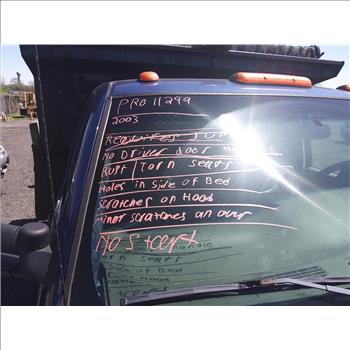 PRB 11299
2003
No Driver Door
Rust | Torn Seats
Holes in Side of Bed
Scratches on Hood
Minor Scratches all over
No Start
Torn Seats
Side of Bed